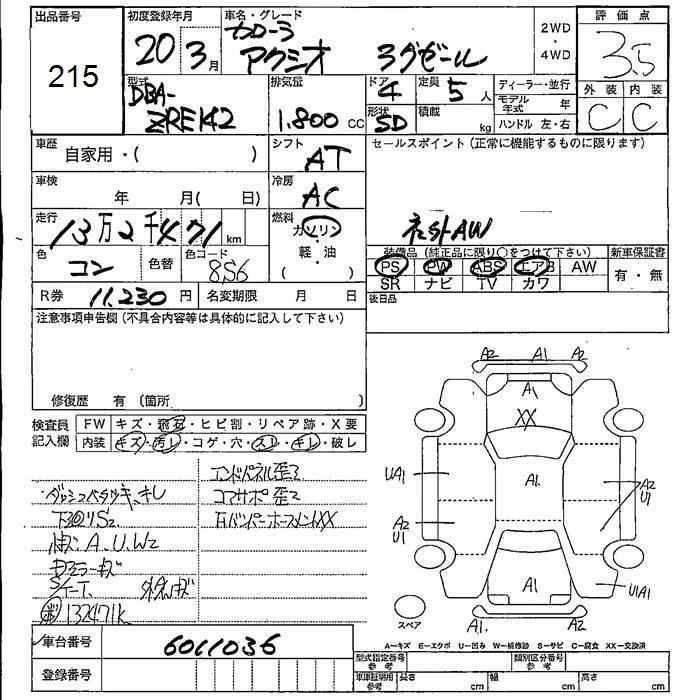 出品番号 初度登録年月 車名・グレード 2WD・4WD 評価点
215 20年 3月 カローラ アクシオ Xグゼール 3.5
型式 排気量 ドア 4 定員 5人 ディーラー・並行 外装 内装
DBA- 形状 積載 モデル年式 年 C C
ZRE142 1.800 CC SD kg ハンドル 左・右
車歴 自家用・( ) シフト AT セールスポイント(正常に機能するものに限ります)
車検 年 月( 日) 冷房 AC
走行 13万2千471km 燃料 ガソリン・軽油 ( ) 社外AW
色 コン 色替 色コード 8S6 装備品(純正品に限り○をつけて下さい) 新車保証書
PS PW ABS エアB AW 有・無
SR ナビ TV カワ
R券 11.230 円 名変期限 月 日 後日品
注意事項申告欄(不具合内容等は具体的に記入して下さい)
修復歴 有(箇所 )
検査員記入欄 FW キズ・飛石・ヒビ割・リペア跡・X要
内装 キズ・汚レ・コゲ・穴・スレ・キレ・破レ
エンドパネル歪ミ
ダッシュベタツキ、キレ コアサポ歪ミ
下廻りS2 Fバンパーホースメント XX
A.U.W2
ミラーキズ
S/T-T.
132471K
車台番号 6011036
登録番号
A2 A1 A2
A1
XX
UA1 A1 A2 U1
A2 U1
A1 U1A1
スペア A1. A2
A-キズ E-エクボ U-凹み W-補修跡 S-サビ C-腐食 XX-交換済
型式指定番号 参考 類別区分番号 参考
車庫証明用 参考 長さ cm 幅 cm 高さ cm